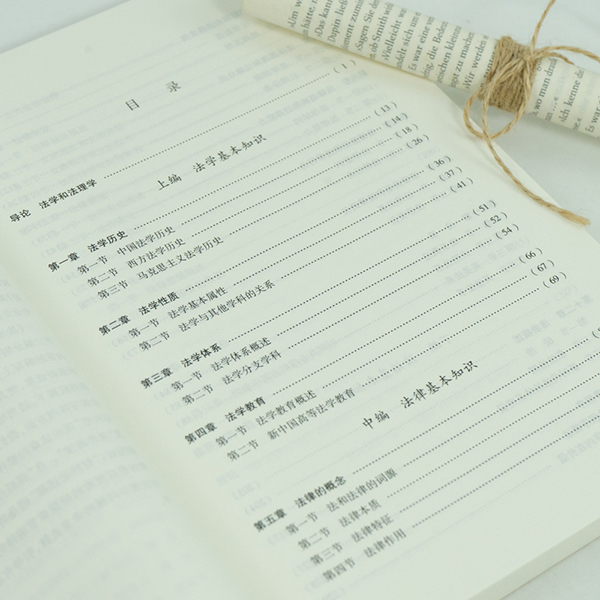 目 录
导论 法学和法理学 (1)
上编 法学基本知识
第一章 法学历史 (13)
第一节 中国法学历史 (14)
第二节 西方法学历史 (18)
第三节 马克思主义法学历史 (26)
第二章 法学性质 (36)
第一节 法学基本属性 (37)
第二节 法学与其他学科的关系 (41)
第三章 法学体系 (51)
第一节 法学体系概述 (52)
第二节 法学分支学科 (54)
第四章 法学教育 (66)
第一节 法学教育概述 (67)
第二节 新中国高等法学教育 (69)
中编 法律基本知识
第五章 法律的概念
第一节 法和法律的词源
第二节 法律本质
第三节 法律特征
第四节 法律作用
»Sagen Sie de
ob Smith wie
»Vielleicht
Es war eine
die Beden
zu machen
»Wir werden
wo man
ich kenne d
Es war